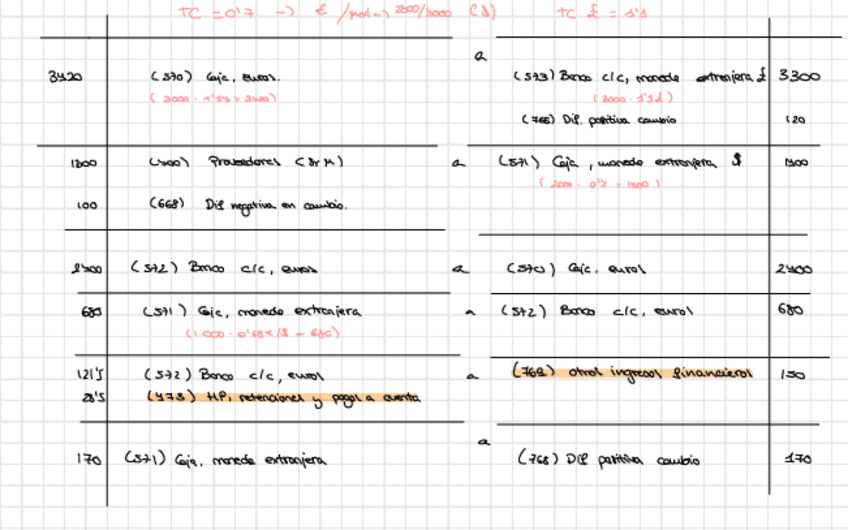 TC = 0'7 → € / 2800/3000 ($) TC £ = 1'1
a
3420 (570) Caja, euros. (573) Banco c/c, moneda extranjera £ 3300
(3000 · 1'14 = 3420) (3000 · 1'1)
(768) Dif. positiva cambio 120
1300 (400) Proveedores a (571) Caja, moneda extranjera $ 1400
(2000 · 0'7 = 1400)
100 (668) Dif negativa en cambio.
2400 (572) Banco c/c, euros a (570) Caja, euros 2400
680 (571) Caja, moneda extranjera a (572) Banco c/c, euros 680
(1000 · 0'68€/$ = 680)
121'5 (572) Banco c/c, euros a (769) otros ingresos financieros 150
28'5 (473) HP, retenciones y pagos a cuenta
a
170 (571) Caja, moneda extranjera (768) Dif positiva cambio 170